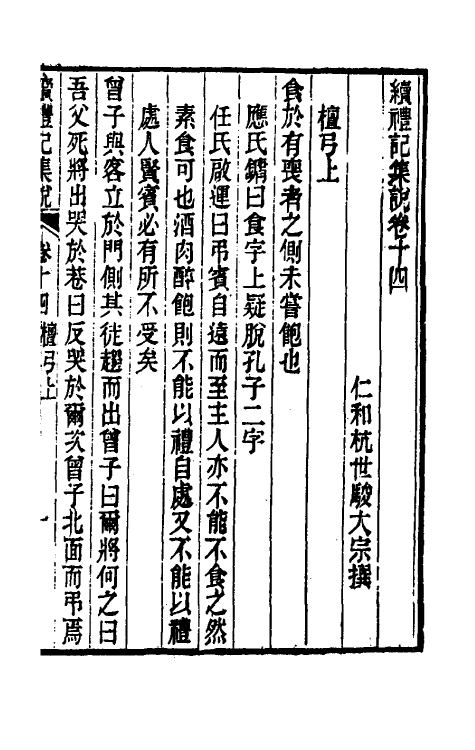 續禮記集說卷十四
仁和杭世駿大宗撰
檀弓上
食於有喪者之側未嘗飽也
應氏鏞曰食字上疑脫孔子二字
任氏啟運曰弔賓自遠而至主人亦不能不食之然
素食可也酒肉醉飽則不能以禮自處又不能以禮
處人賢賓必有所不受矣
曾子與客立於門側其徒趨而出曾子曰爾將何之曰
吾父死將出哭於巷曰反哭於爾次曾子北面而弔焉
續禮記集說 卷十四 檀弓上 一